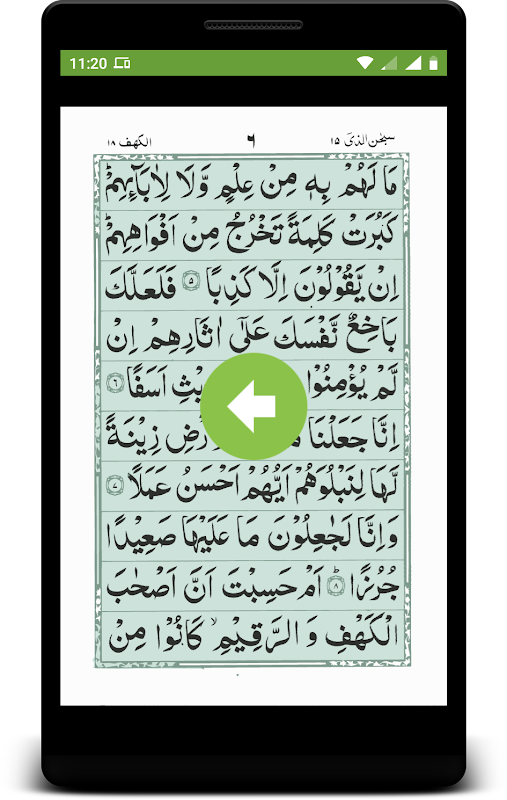 11:20
سبحٰن الذیٓ ١٥ ٦ الکهف ١٨
مَا لَهُمْ بِهٖ مِنْ عِلْمٍ وَّلَا لِاٰبَآئِهِمْ ؕ
كَبُرَتْ كَلِمَةً تَخْرُجُ مِنْ اَفْوَاهِهِمْ ؕ
اِنْ يَّقُوْلُوْنَ اِلَّا كَذِبًا ٥ فَلَعَلَّكَ
بَاخِعٌ نَّفْسَكَ عَلٰٓى اٰثَارِهِمْ اِنْ
لَّمْ يُؤْمِنُوْا اَسَفًا ٦
اِنَّا جَعَلْنَا زِيْنَةً
لَّهَا لِنَبْلُوَهُمْ اَيُّهُمْ اَحْسَنُ عَمَلًا ٧
وَاِنَّا لَجٰعِلُوْنَ مَا عَلَيْهَا صَعِيْدًا
جُرُزًا ؕ ٨ اَمْ حَسِبْتَ اَنَّ اَصْحٰبَ
الْكَهْفِ وَ الرَّقِيْمِ ۙ كَانُوْا مِنْ